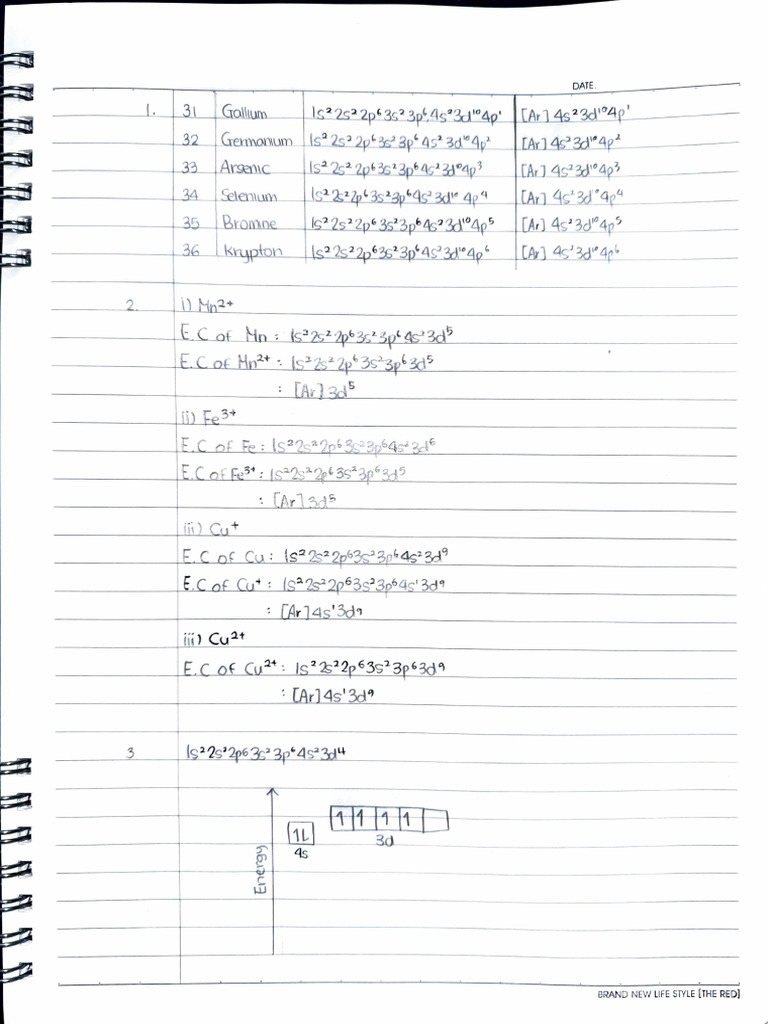 DATE.
1. 31 Gallium 1s²2s²2p⁶3s²3p⁶4s²3d¹⁰4p¹ [Ar] 4s²3d¹⁰4p¹
32 Germanium 1s²2s²2p⁶3s²3p⁶4s²3d¹⁰4p² [Ar] 4s²3d¹⁰4p²
33 Arsenic 1s²2s²2p⁶3s²3p⁶4s²3d¹⁰4p³ [Ar] 4s²3d¹⁰4p³
34 Selenium 1s²2s²2p⁶3s²3p⁶4s²3d¹⁰4p⁴ [Ar] 4s²3d¹⁰4p⁴
35 Bromine 1s²2s²2p⁶3s²3p⁶4s²3d¹⁰4p⁵ [Ar] 4s²3d¹⁰4p⁵
36 Krypton 1s²2s²2p⁶3s²3p⁶4s²3d¹⁰4p⁶ [Ar] 4s²3d¹⁰4p⁶
2. i) Mn²⁺
E.C of Mn : 1s²2s²2p⁶3s²3p⁶4s²3d⁵
E.C of Mn²⁺ : 1s²2s²2p⁶3s²3p⁶3d⁵
: [Ar] 3d⁵
ii) Fe³⁺
E.C of Fe : 1s²2s²2p⁶3s²3p⁶4s²3d⁶
E.C of Fe³⁺ : 1s²2s²2p⁶3s²3p⁶3d⁵
: [Ar] 3d⁵
iii) Cu⁺
E.C of Cu : 1s²2s²2p⁶3s²3p⁶4s²3d⁹
E.C of Cu⁺ : 1s²2s²2p⁶3s²3p⁶4s¹3d⁹
: [Ar] 4s¹3d⁹
iii) Cu²⁺
E.C of Cu²⁺ : 1s²2s²2p⁶3s²3p⁶3d⁹
: [Ar] 4s¹3d⁹
3 1s²2s²2p⁶3s²3p⁶4s²3d⁴
1 1 1 1
1L
3d
4s
Energy
BRAND NEW LIFE STYLE [THE RED]